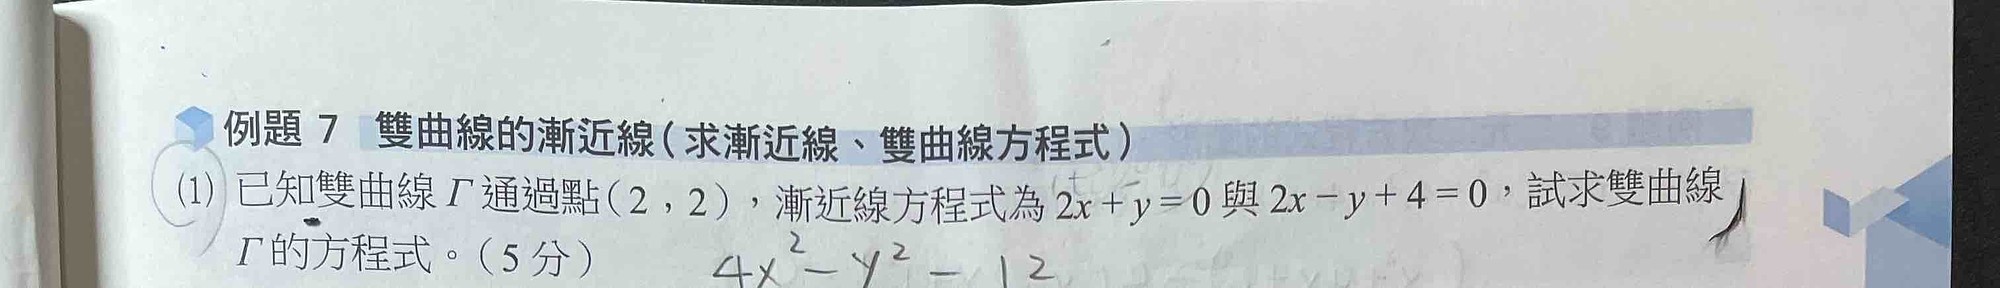 例題 7 雙曲線的漸近線(求漸近線、雙曲線方程式)
(1) 已知雙曲線 Γ 通過點(2,2),漸近線方程式為 2x+y=0 與 2x-y+4=0,試求雙曲線
Γ 的方程式。(5 分)
4x²-y²-12